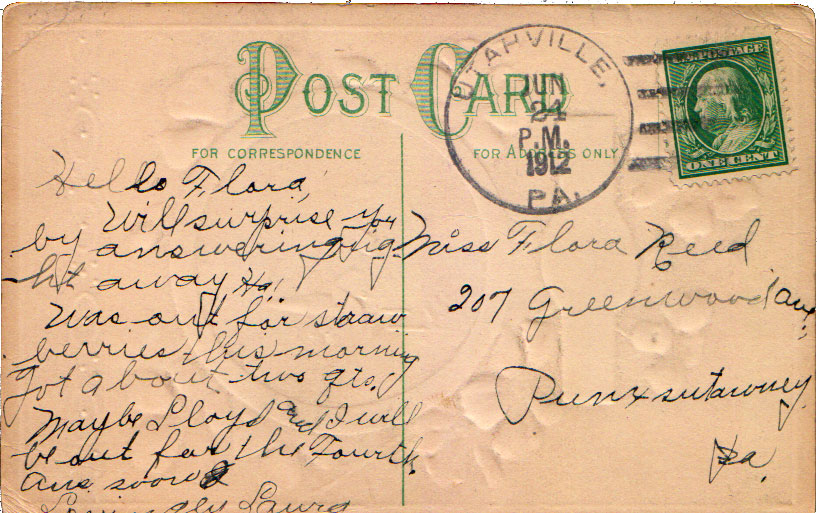 POST CARD
FOR CORRESPONDENCE
FOR ADDRESS ONLY
UTAHVILLE,
JUN
24
P.M.
1912
PA.
U.S. POSTAGE
ONE CENT
Hello Flora,
Will surprise you
by answering rig-
ht away Ha!
Was out for straw
berries this morning
Got about two qts.
Maybe Lloyd and I will
be out for the Fourth.
Ans soon
Lovingly Laura
Miss Flora Reed
207 Greenwood Ave,
Punxsutawney
Pa.